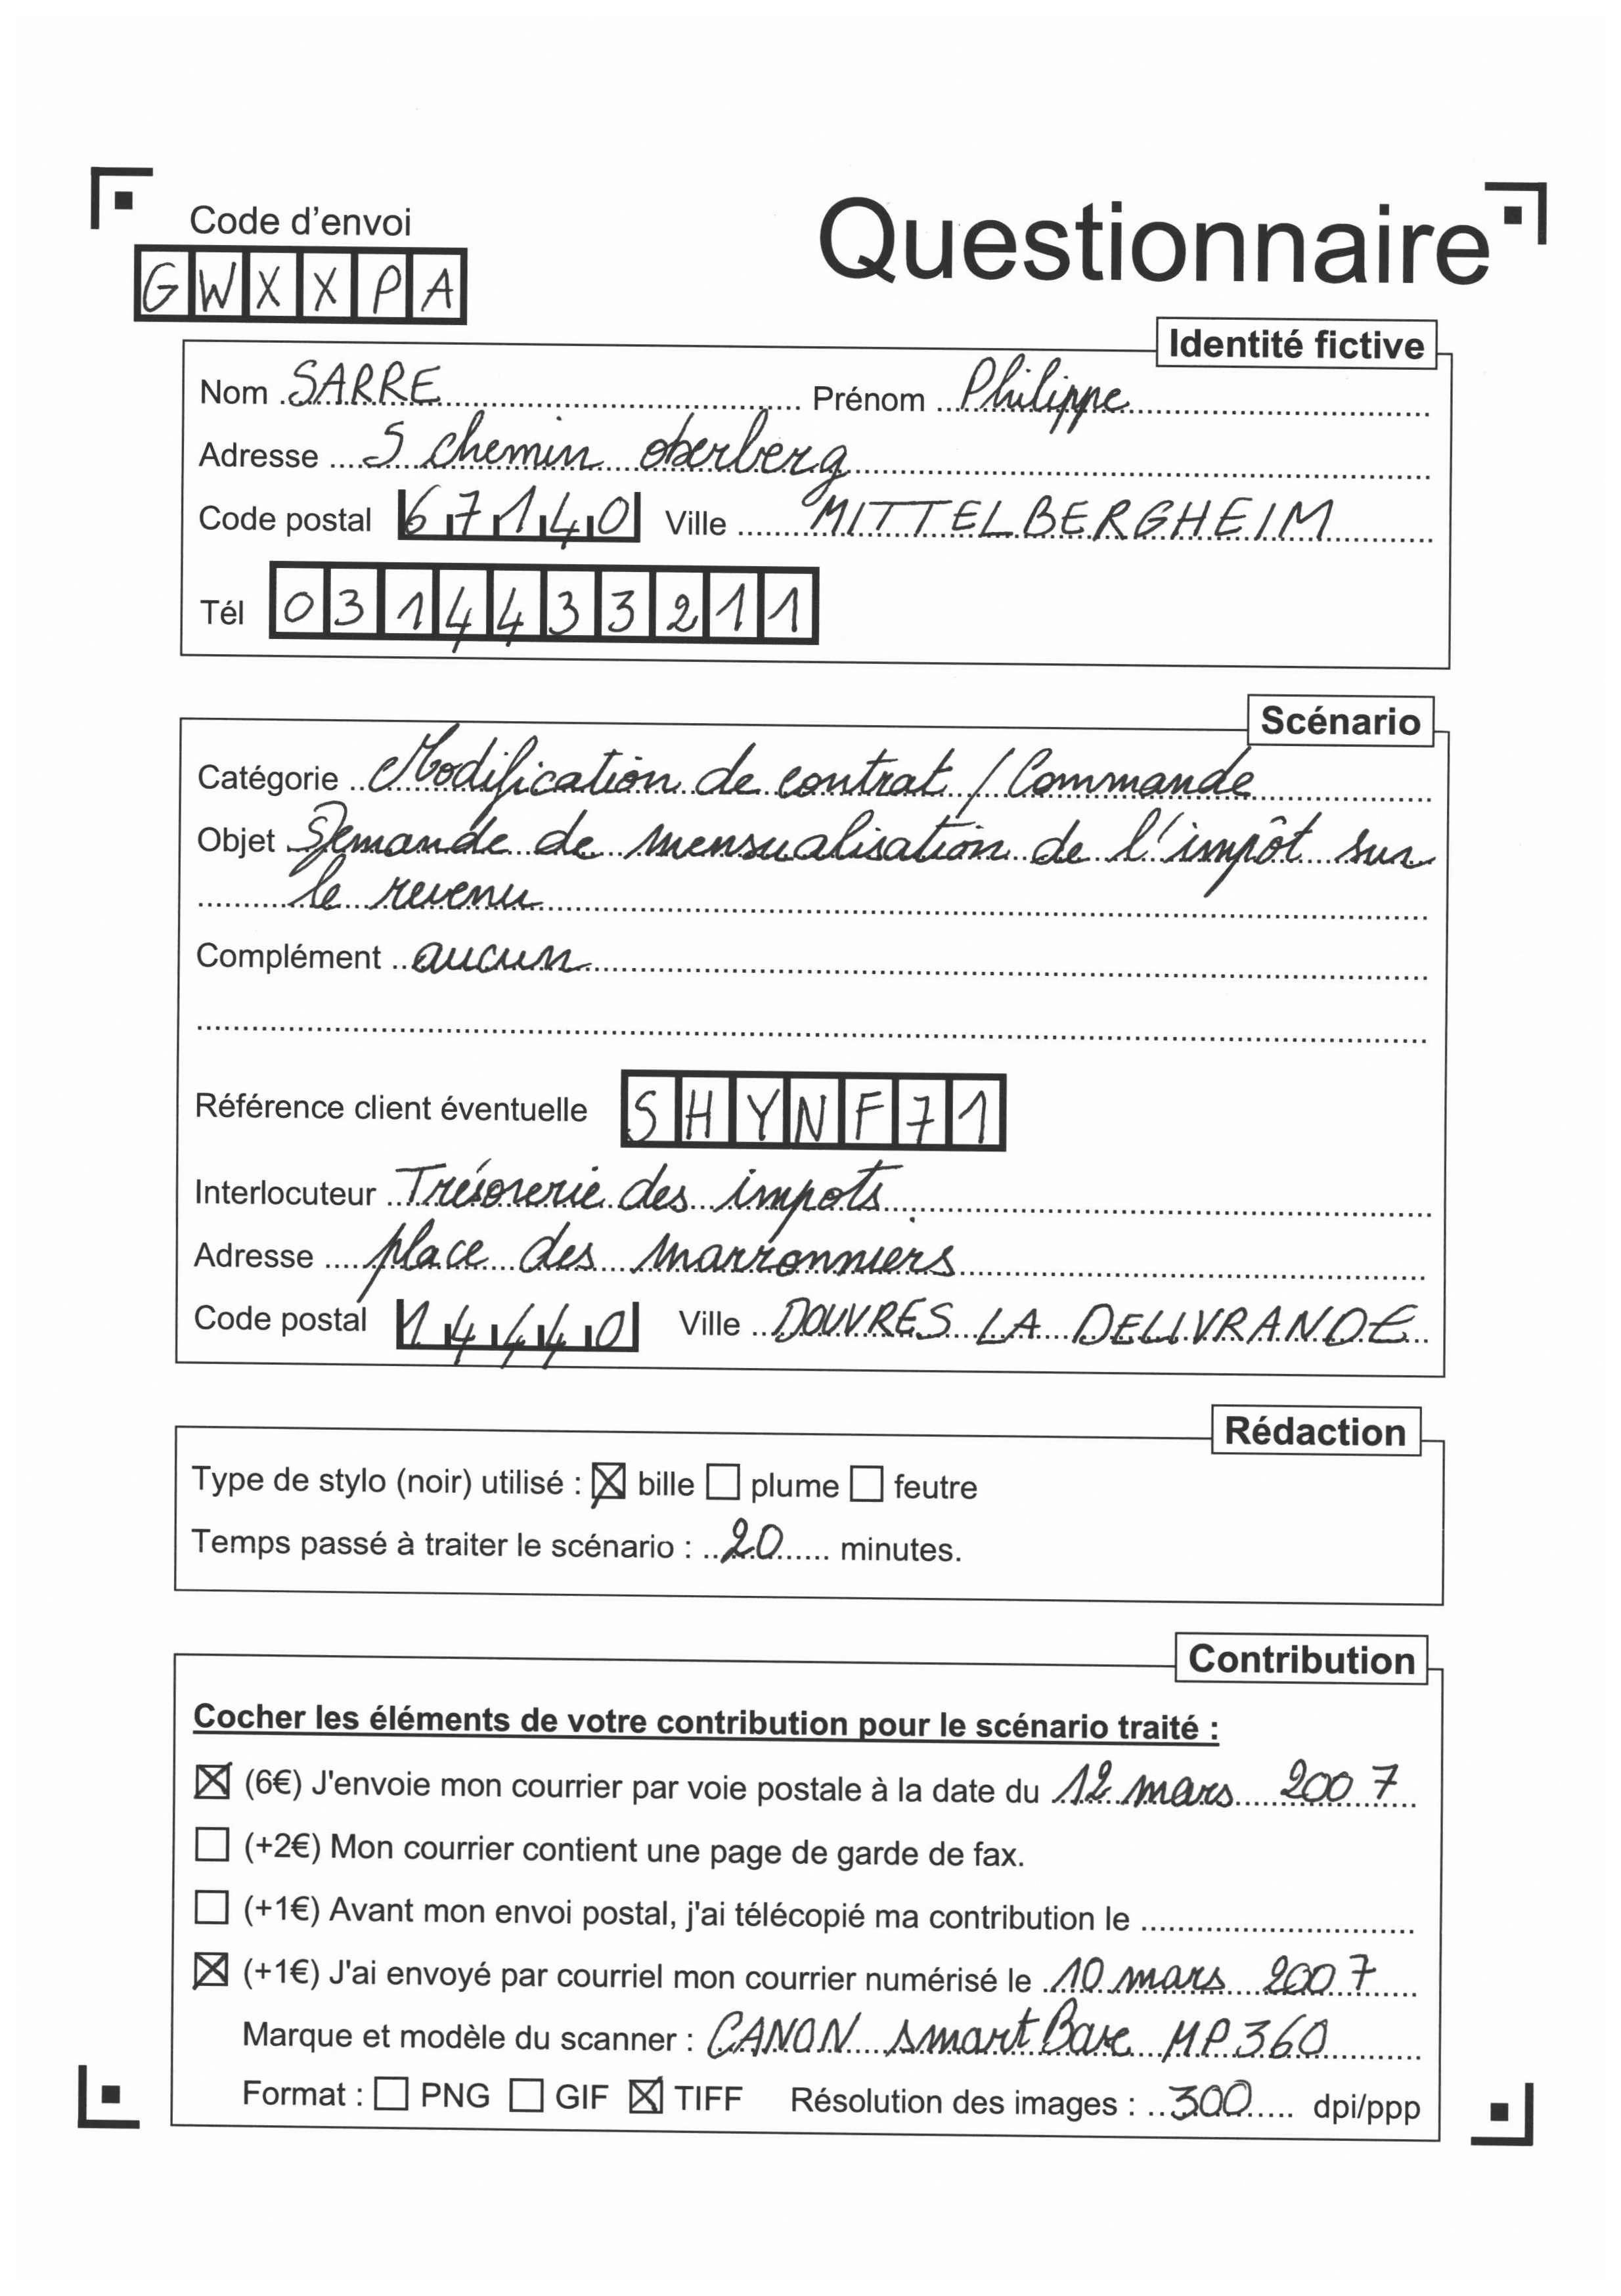 Code d'envoi
Questionnaire
GWXXPA
Identité fictive
Nom SARRE Prénom Philippe
Adresse 5 chemin oberberg
Code postal 67140 Ville MITTELBERGHEIM
Tél 0314433211
Scénario
Catégorie Modification de contrat / Commande
Objet Demande de mensualisation de l'impôt sur
le revenu
Complément aucun
Référence client éventuelle SHYNF71
Interlocuteur Trésorerie des impots
Adresse place des marronniers
Code postal 14440 Ville DOUVRES LA DELIVRANDE
Rédaction
Type de stylo (noir) utilisé : ☒ bille ☐ plume ☐ feutre
Temps passé à traiter le scénario : 20 minutes.
Contribution
Cocher les éléments de votre contribution pour le scénario traité :
☒ (6€) J'envoie mon courrier par voie postale à la date du 12 mars 2007
☐ (+2€) Mon courrier contient une page de garde de fax.
☐ (+1€) Avant mon envoi postal, j'ai télécopié ma contribution le
☒ (+1€) J'ai envoyé par courriel mon courrier numérisé le 10 mars 2007
Marque et modèle du scanner : CANON smartBase MP360
Format : ☐ PNG ☐ GIF ☒ TIFF Résolution des images : 300 dpi/ppp